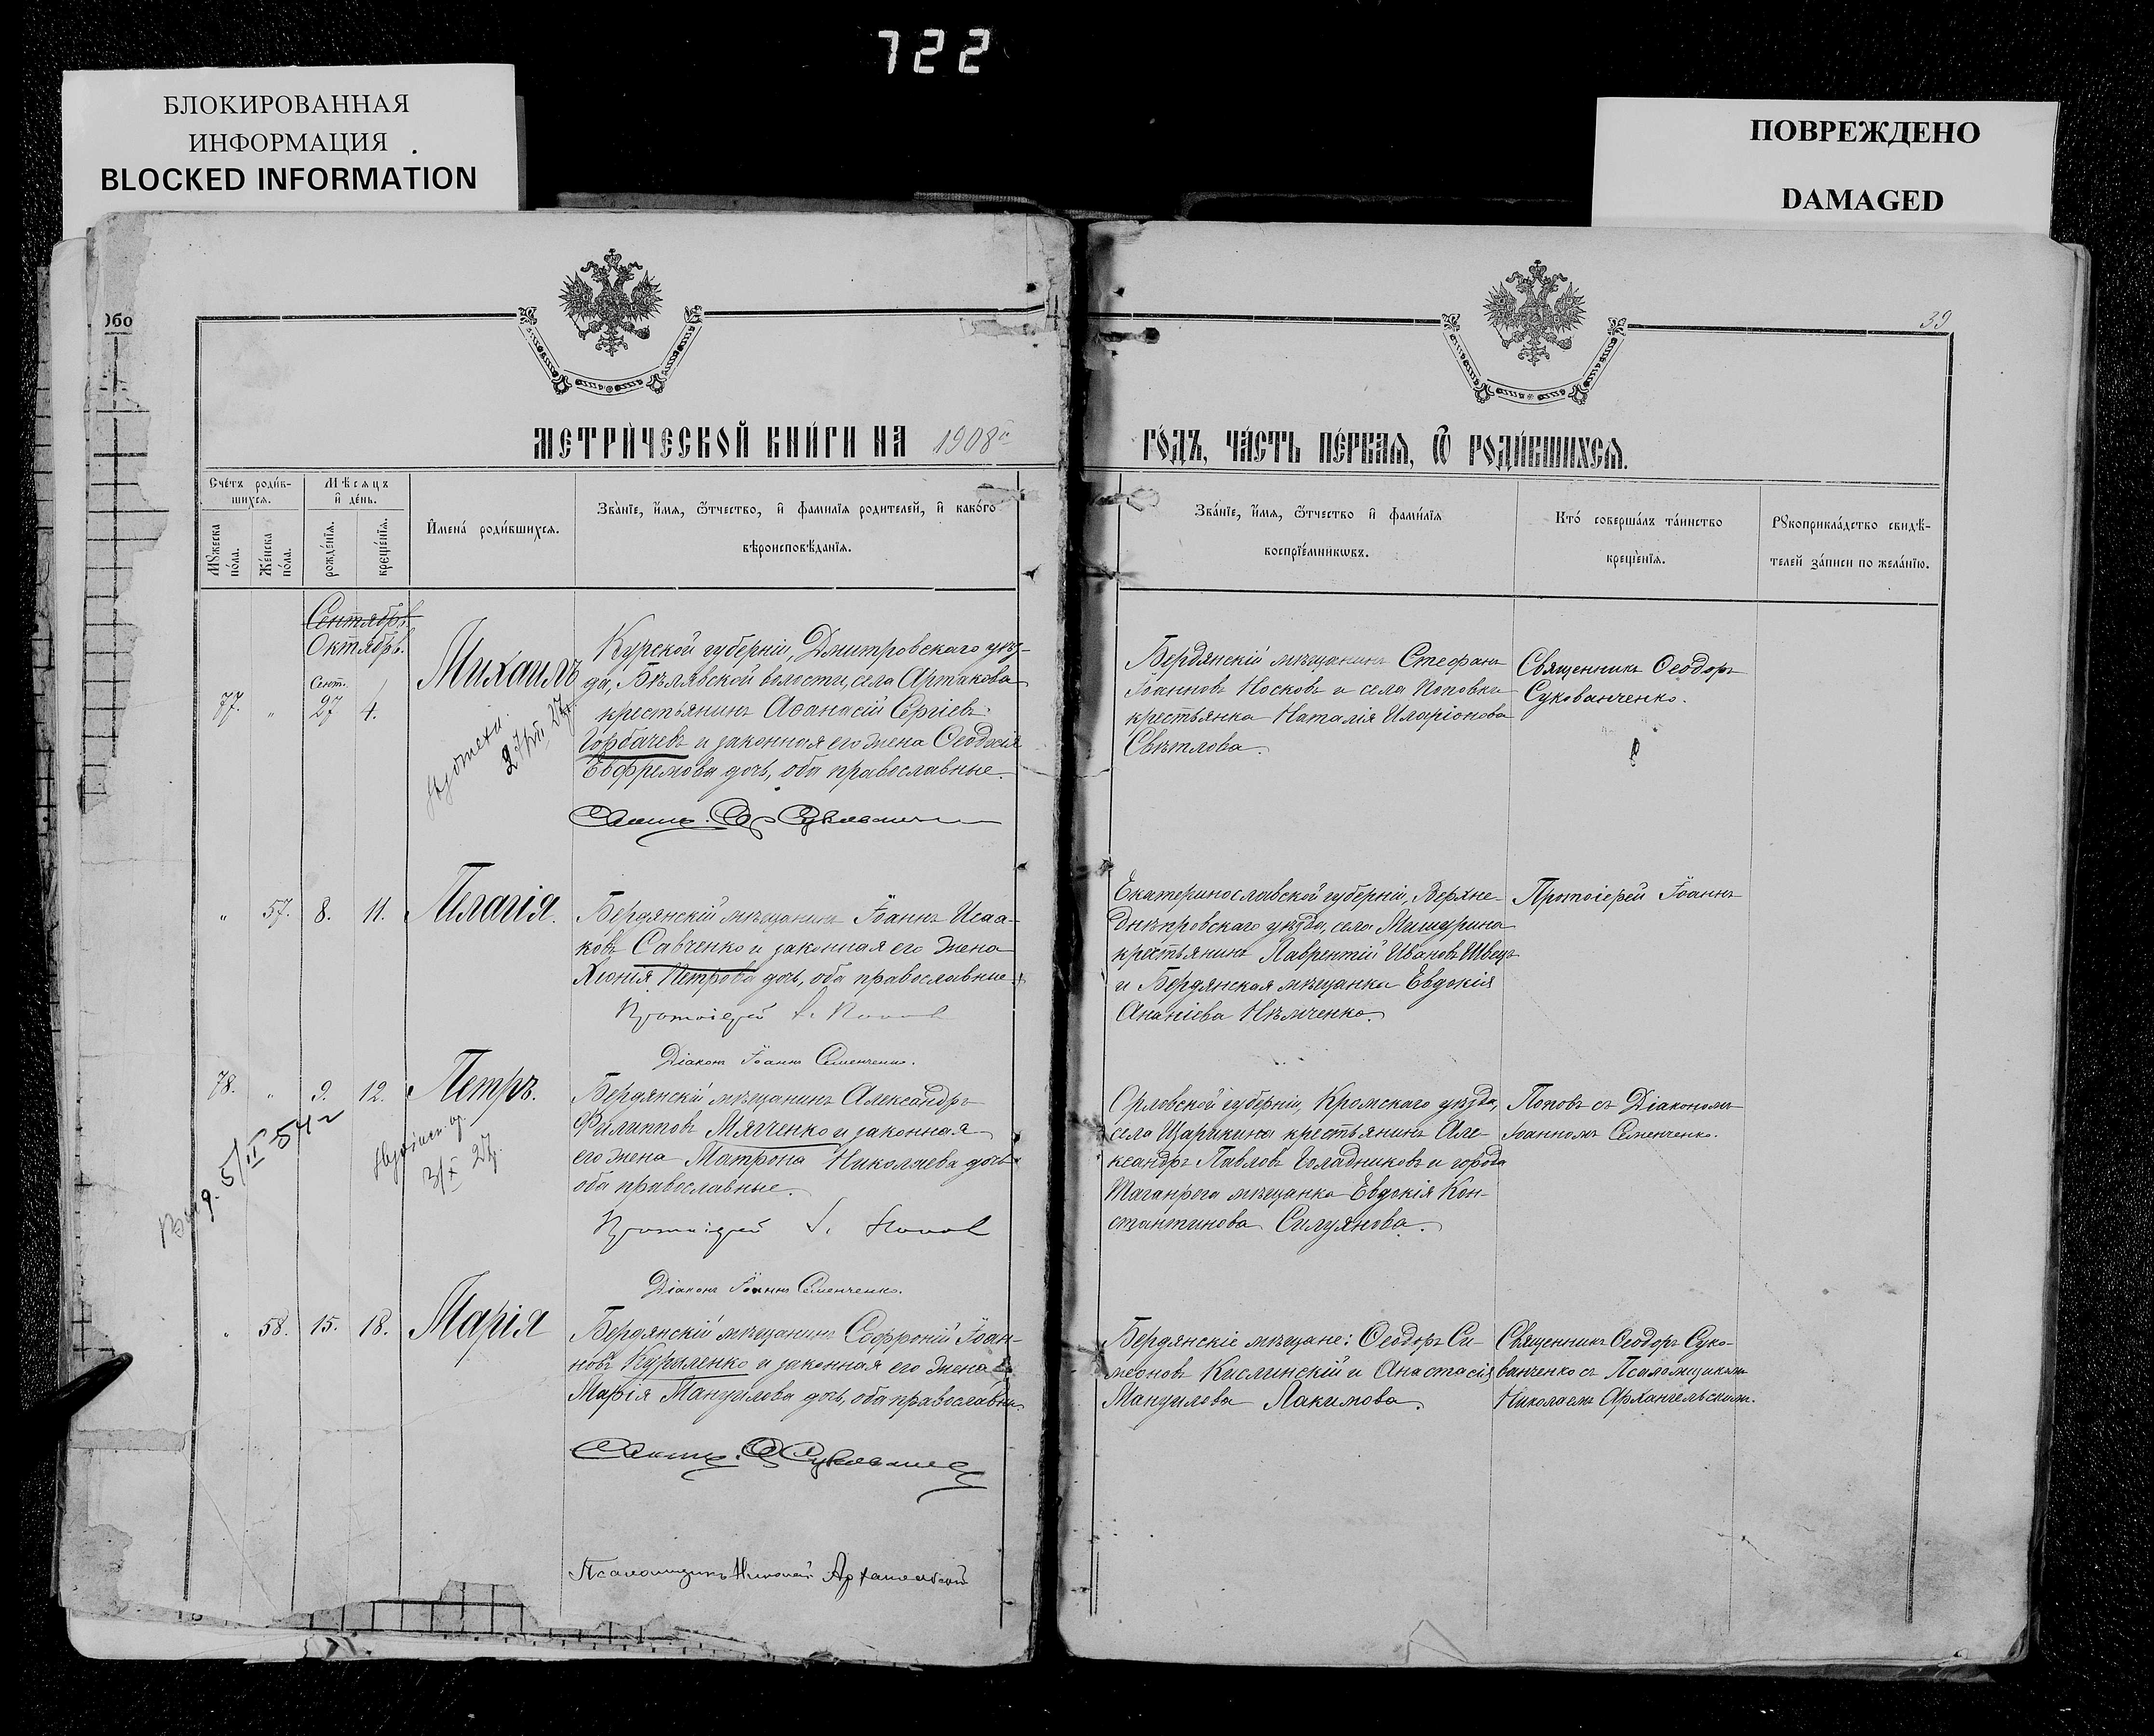 722
БЛОКИРОВАННАЯ
ИНФОРМАЦИЯ
BLOCKED INFORMATION
ПОВРЕЖДЕНО
DAMAGED
Обо
39
МЕТРИ́ЧЕСКОЙ КНИ́ГИ НА 1908й
ГО́ДЪ, ЧА́СТЬ ПЕ́РВАѦ, Ѿ РОДИ́ВШИХСѦ.
Сче́тъ роди́в-
шихсѧ.
Мѣсѧцъ
и҆ де́нь.
Мꙋжеска
по́ла.
Же́нска
по́ла.
рожде́нїѧ.
креще́нїѧ.
И҆мена̀ роди́вшихсѧ.
Зва́нїе, и҆́мѧ, ѻ҆́тчество, и҆ фами́лїѧ роди́телей, и҆ како́гѡ
вѣроисповѣ́данїѧ.
Зва́нїе, и҆́мѧ, ѻ҆́тчество и҆ фами́лїѧ
воспрїе́мникѡвъ.
Кто̀ соверша́лъ та́инство
креще́нїѧ.
Рꙋкоприкла́дство свидѣ́-
телей за́писи по жела́нїю.
Сентябрь.
Октябрь.
Сент.
77. " 27 4. Михаилъ
Курской губерніи, Дмитровскаго уѣз-
да, Бѣлявской волости, села Артакова
крестьянинъ Аѳанасій Сергіевъ
Горбачевъ и законная его жена Ѳеодосія
Евфремова дочь, оба православные.
27/VII 27г.
Бердянскій мѣщанинъ Стефанъ
Іоанновъ Носковъ и села Поповки
крестьянка Наталія Иларіонова
Свѣтлова.
Священникъ Ѳеодоръ
Сукованченко.
" 57. 8. 11. Пелагія.
Бердянскій мѣщанинъ Іоаннъ Исаа-
ковъ Савченко и законная его жена
Хіонія Петрова дочь, оба православные
Протоіерей І. Попов
Діаконъ Іоаннъ Семенченко.
Екатеринославской губерніи, Верхне-
Днѣпровскаго уѣзда, села Мишурина
крестьянинъ Лаврентій Ивановъ Швецъ
и Бердянская мѣщанка Евдокія
Ананіева Нѣмченко.
Протоіерей Іоаннъ
78. " 9. 12. Петръ.
Бердянскій мѣщанинъ Александръ
Филипповъ Мягченко и законная
его жена Матрона Николаева дочь
оба православные.
Протоіерей І. Попов
Діаконъ Іоаннъ Семенченко.
5/II-54г
3/X 27г.
Орловской губерніи, Кромскаго уѣзда,
села Цариκина крестьянинъ Але-
ксандръ Павловъ Голадниковъ и города
Таганрога мѣщанка Евдокія Кон-
стантинова Силуянова.
Поповъ съ Діакономъ
Іоанномъ Семенченко.
" 58. 15. 18. Марія
Бердянскій мѣщанинъ Софроній Іоан-
новъ Куриленко и законная его жена
Марія Мануилова дочь, оба православны.
Псаломщикъ Николай Архангельскій
Бердянскіе мѣщане: Ѳеодоръ Си-
меоновъ Кислинскій и Анастасія
Мануилова Лакимова.
Священникъ Ѳеодоръ Суко-
ванченко съ Псаломщикомъ
Николаемъ Архангельскимъ.